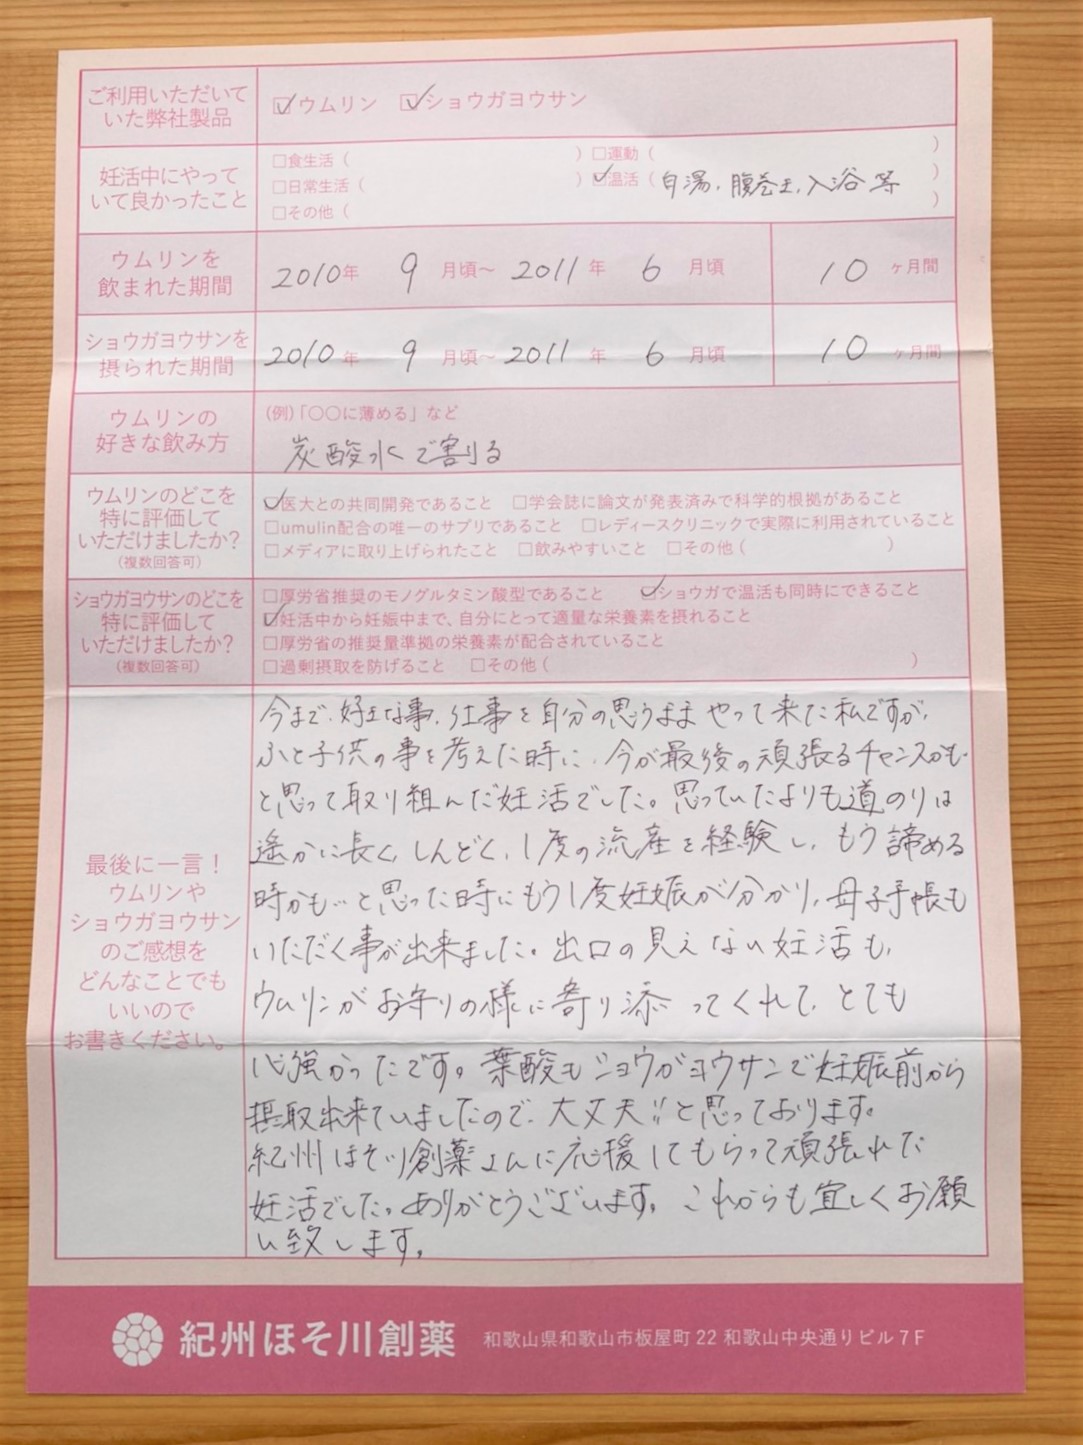 ご利用いただいて
いた弊社製品
☑ウムリン ☑ショウガヨウサン
妊活中にやって
いて良かったこと
□食生活（ ）□運動（ ）
□日常生活（ ）☑温活（白湯、腹巻き、入浴等）
□その他（ ）
ウムリンを
飲まれた期間
2010年 9月頃〜2011年 6月頃 10ヶ月間
ショウガヨウサンを
摂られた期間
2010年 9月頃〜2011年 6月頃 10ヶ月間
ウムリンの
好きな飲み方
(例)「〇〇に薄める」など
炭酸水で割る
ウムリンのどこを
特に評価して
いただけましたか?
(複数回答可)
☑医大との共同開発であること □学会誌に論文が発表済みで科学的根拠があること
□umulin配合の唯一のサプリであること □レディースクリニックで実際に利用されていること
□メディアに取り上げられたこと □飲みやすいこと □その他（ ）
ショウガヨウサンのどこを
特に評価して
いただけましたか?
(複数回答可)
□厚労省推奨のモノグルタミン酸型であること ☑ショウガで温活も同時にできること
☑妊活中から妊娠中まで、自分にとって適量な栄養素を摂れること
□厚労省の推奨量準拠の栄養素が配合されていること
□過剰摂取を防げること □その他（ ）
最後に一言！
ウムリンや
ショウガヨウサン
のご感想を
どんなことでも
いいので
お書きください。
今まで、好きな事、仕事を自分の思うままやって来た私ですが、
ふと子供の事を考えた時に、今が最後の頑張るチャンスかも…
と思って取り組んだ妊活でした。思っていたよりも道のりは
遙かに長く、しんどく、1度の流産を経験し、もう諦める
時かも…と思った時にもう1度妊娠が分かり、母子手帳も
いただく事が出来ました。出口の見えない妊活も、
ウムリンがお守りの様に寄り添ってくれて、とても
心強かったです。葉酸もショウガヨウサンで妊娠前から
摂取出来ていましたので、大丈夫!!と思っております。
紀州ほそ川創薬さんに応援してもらって頑張れた
妊活でした。ありがとうございます。これからも宜しくお願
い致します。
紀州ほそ川創薬 和歌山県和歌山市板屋町22 和歌山中央通りビル7F